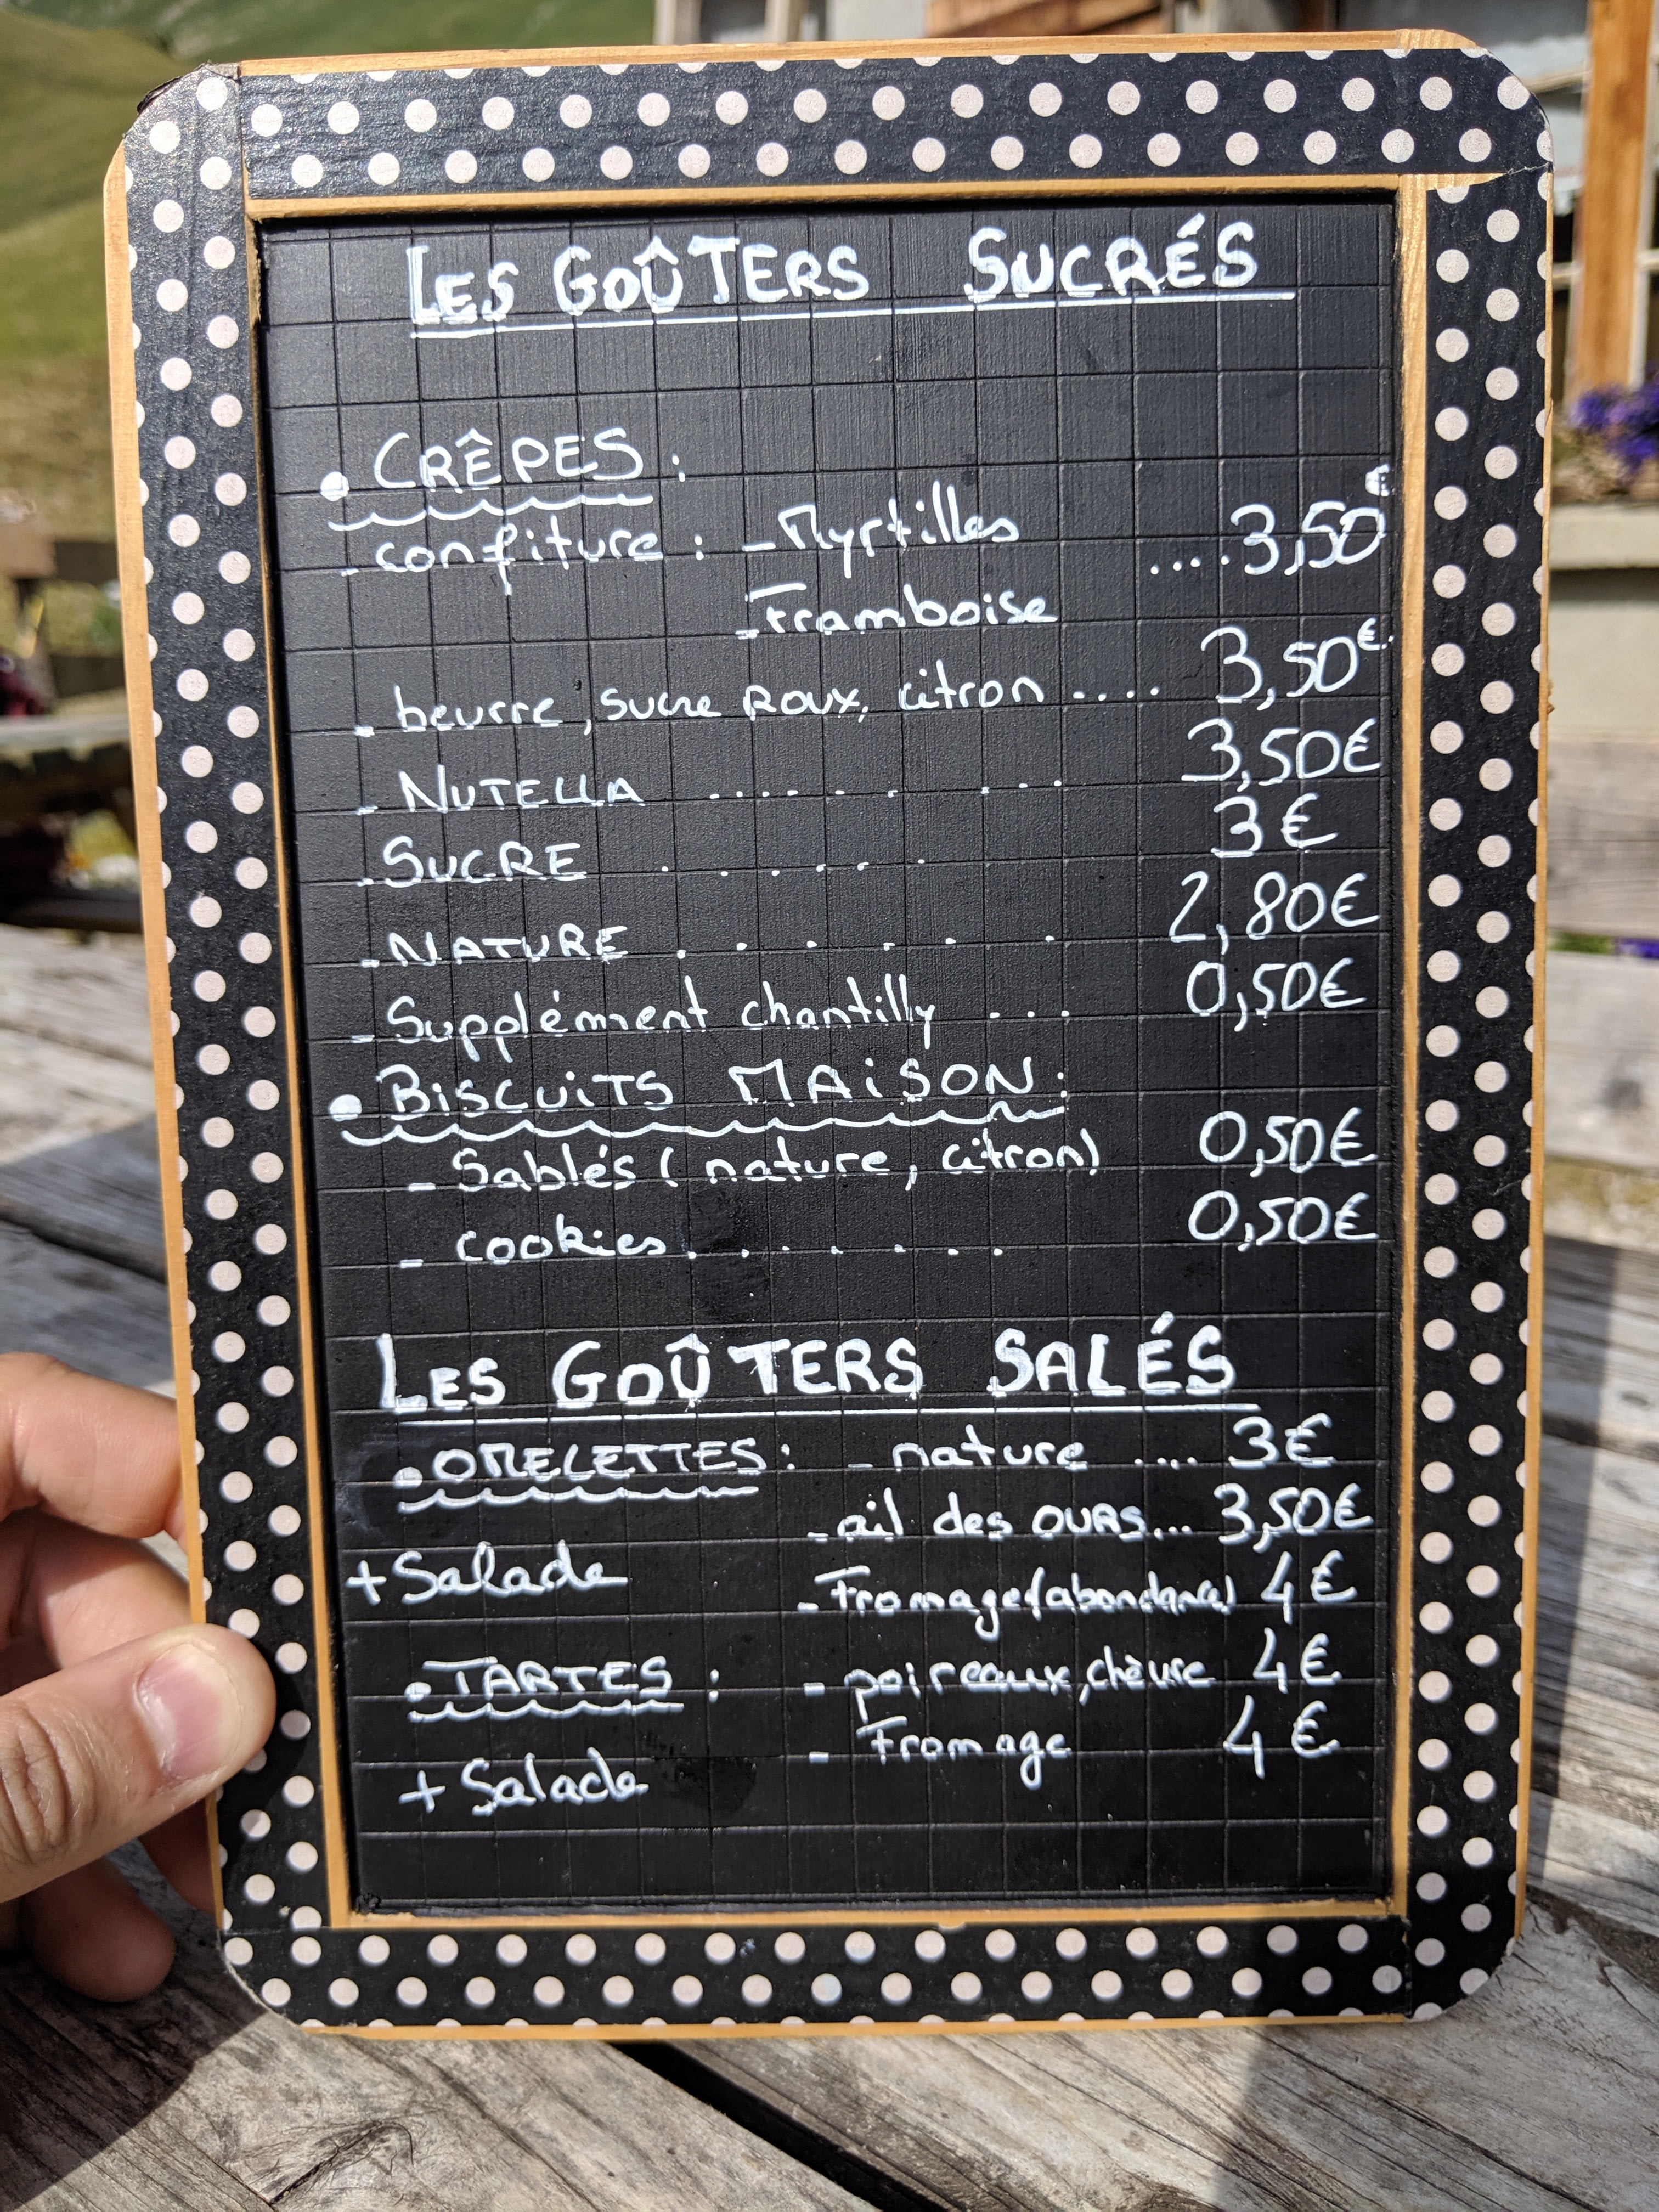 LES GOÛTERS SUCRÉS
• CRÊPES :
- confiture : - Myrtilles .... 3,50€
- Framboise
- beurre, sucre Roux, citron .... 3,50€
- NUTELLA .......... 3,50€
- SUCRE ...... 3€
- NATURE ...... 2,80€
- Supplément chantilly ... 0,50€
• BISCUITS MAISON :
- Sablés (nature, citron) 0,50€
- cookies ...... 0,50€
LES GOÛTERS SALÉS
• OMELETTES : - nature .... 3€
- ail des OURS... 3,50€
+ Salade - Fromage (abondance) 4€
• TARTES : - poireaux, chèvre 4€
- Fromage 4€
+ Salade